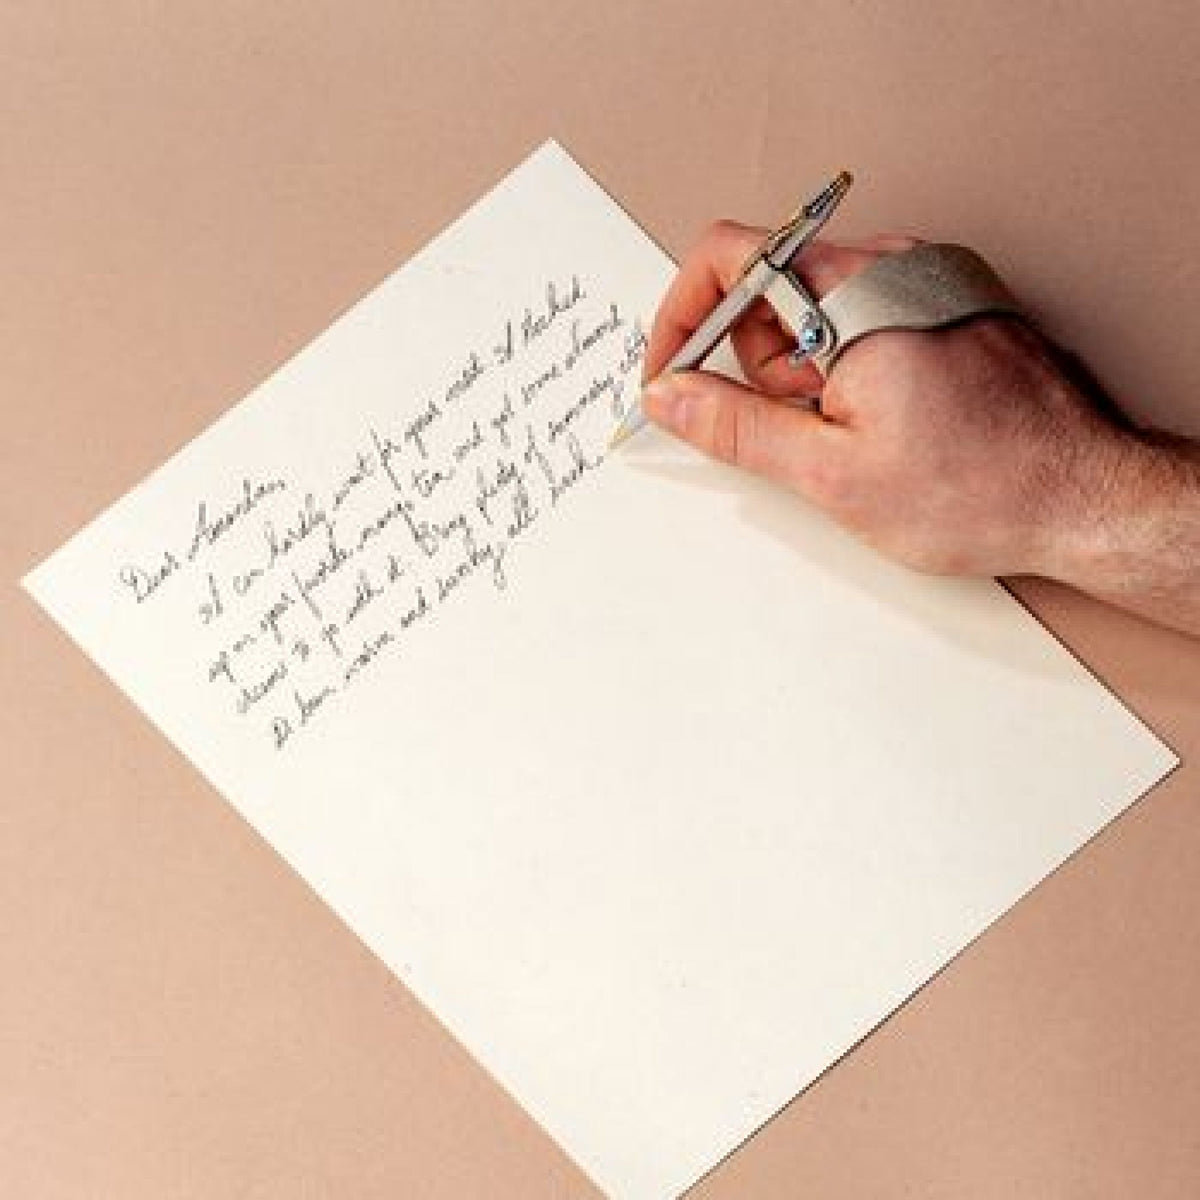 Dear Amanda,
I can hardly wait for your visit. I stocked
up on your favorite mango tea and got some almond
to go with it. Bring plenty of summery
It's been warm and sunny all week.